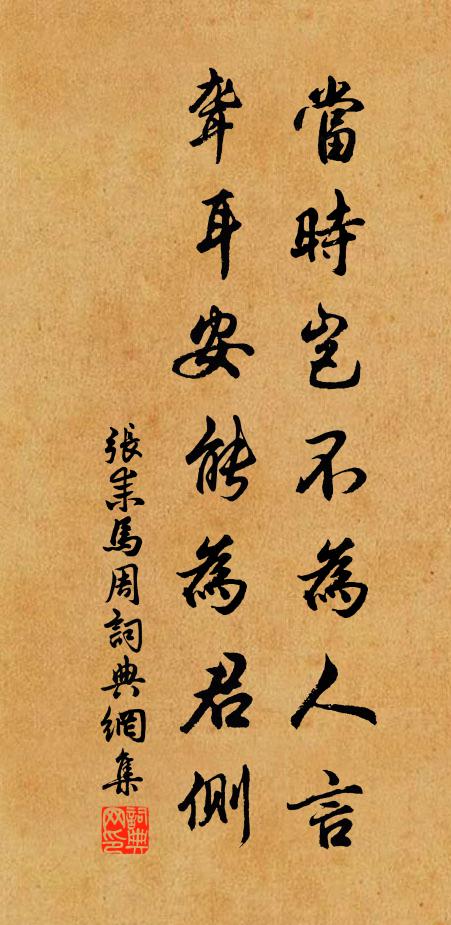 當時豈不為人言
聳耳安能為君側
張耒馬周詞典網集
詞典
网印